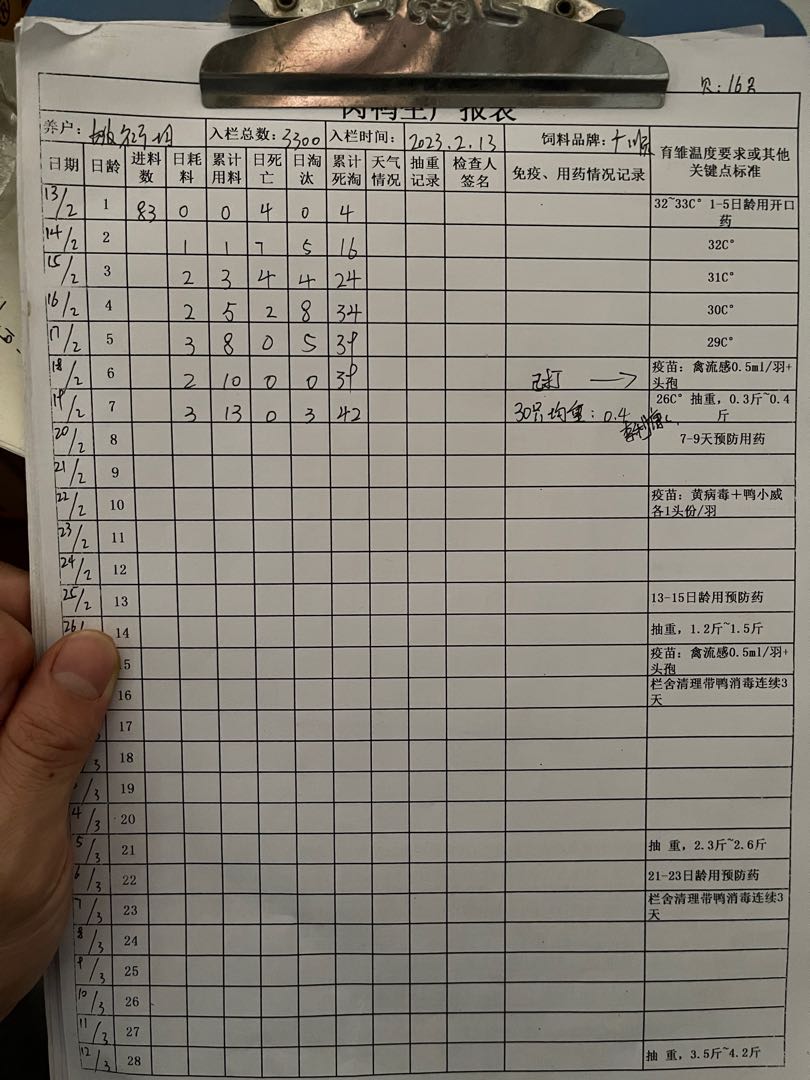 贝：16只
肉鸭生产报表
养户： 入栏总数：3300 入栏时间：2023.2.13 饲料品牌：大顺 育雏温度要求或其他关键点标准
日期 日龄 进料数 日耗料 累计用料 日死亡 日淘汰 累计死淘 天气情况 抽重记录 检查人签名 免疫、用药情况记录
13/2 1 83 0 0 4 0 4 32~33C° 1-5日龄用开口药
14/2 2 1 1 7 5 16 32C°
15/2 3 2 3 4 4 24 31C°
16/2 4 2 5 2 8 34 30C°
17/2 5 3 8 0 5 39 29C°
18/2 6 2 10 0 0 39 已打 → 疫苗：禽流感0.5ml/羽+头孢
19/2 7 3 13 0 3 42 30只均重：0.4 26C° 抽重，0.3斤~0.4斤
20/2 8 7-9天预防用药
21/2 9
22/2 10 疫苗：黄病毒＋鸭小威各1头份/羽
23/2 11
24/2 12
25/2 13 13-15日龄用预防药
26/ 14 抽重，1.2斤~1.5斤
15 疫苗：禽流感0.5ml/羽+头孢
16 栏舍清理带鸭消毒连续3天
17
/3 18
/3 19
4/3 20
5/3 21 抽 重，2.3斤~2.6斤
6/3 22 21-23日龄用预防药
7/3 23 栏舍清理带鸭消毒连续3天
8/3 24
9/3 25
10/3 26
11/3 27
12/3 28 抽 重，3.5斤~4.2斤